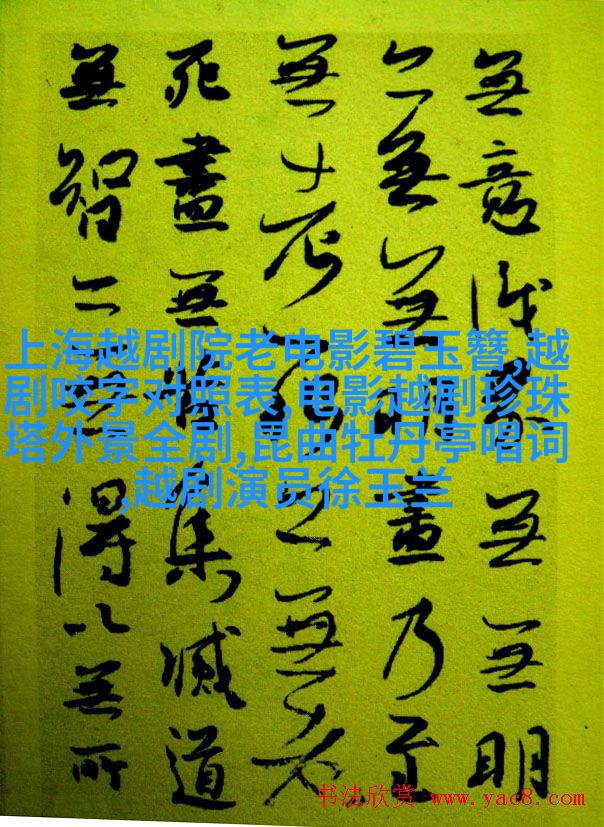 無意識界無無明
亦無無明盡乃至
無老死亦無老
死盡無苦集滅道
無智亦無得以無所
上海越剧院老电影碧玉簪,越
剧咬字对照表,电影越剧珍珠
塔外景全剧,昆曲牡丹亭唱词
,越剧演员徐玉兰
书法欣赏 www.yac8.com